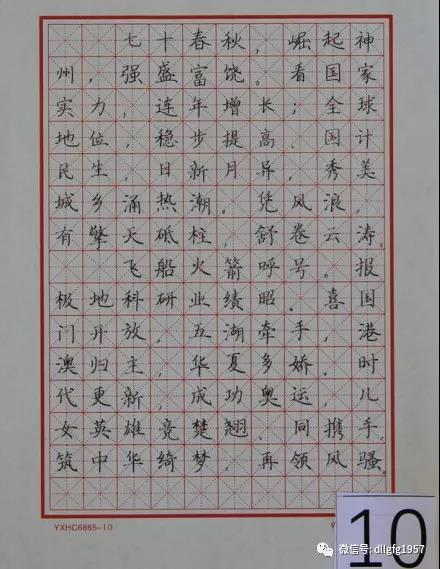 七十春秋，崛起神
州，强盛富饶。看国家
实力，连年增长；全球
地位，稳步提高。国计
民生，日新月异，秀美
城乡涌热潮。凭风浪，
有擎天砥柱，舒卷云涛。
飞船火箭呼号。报
极地科研业绩昭。喜国
门开放，五湖牵手，港
澳归主，华夏多娇。时
代更新，成功奥运，儿
女英雄竞楚翘。同携手，
筑中华绮梦，再领风骚。
YXHC6865-10
10
微信号: dllgfg1957